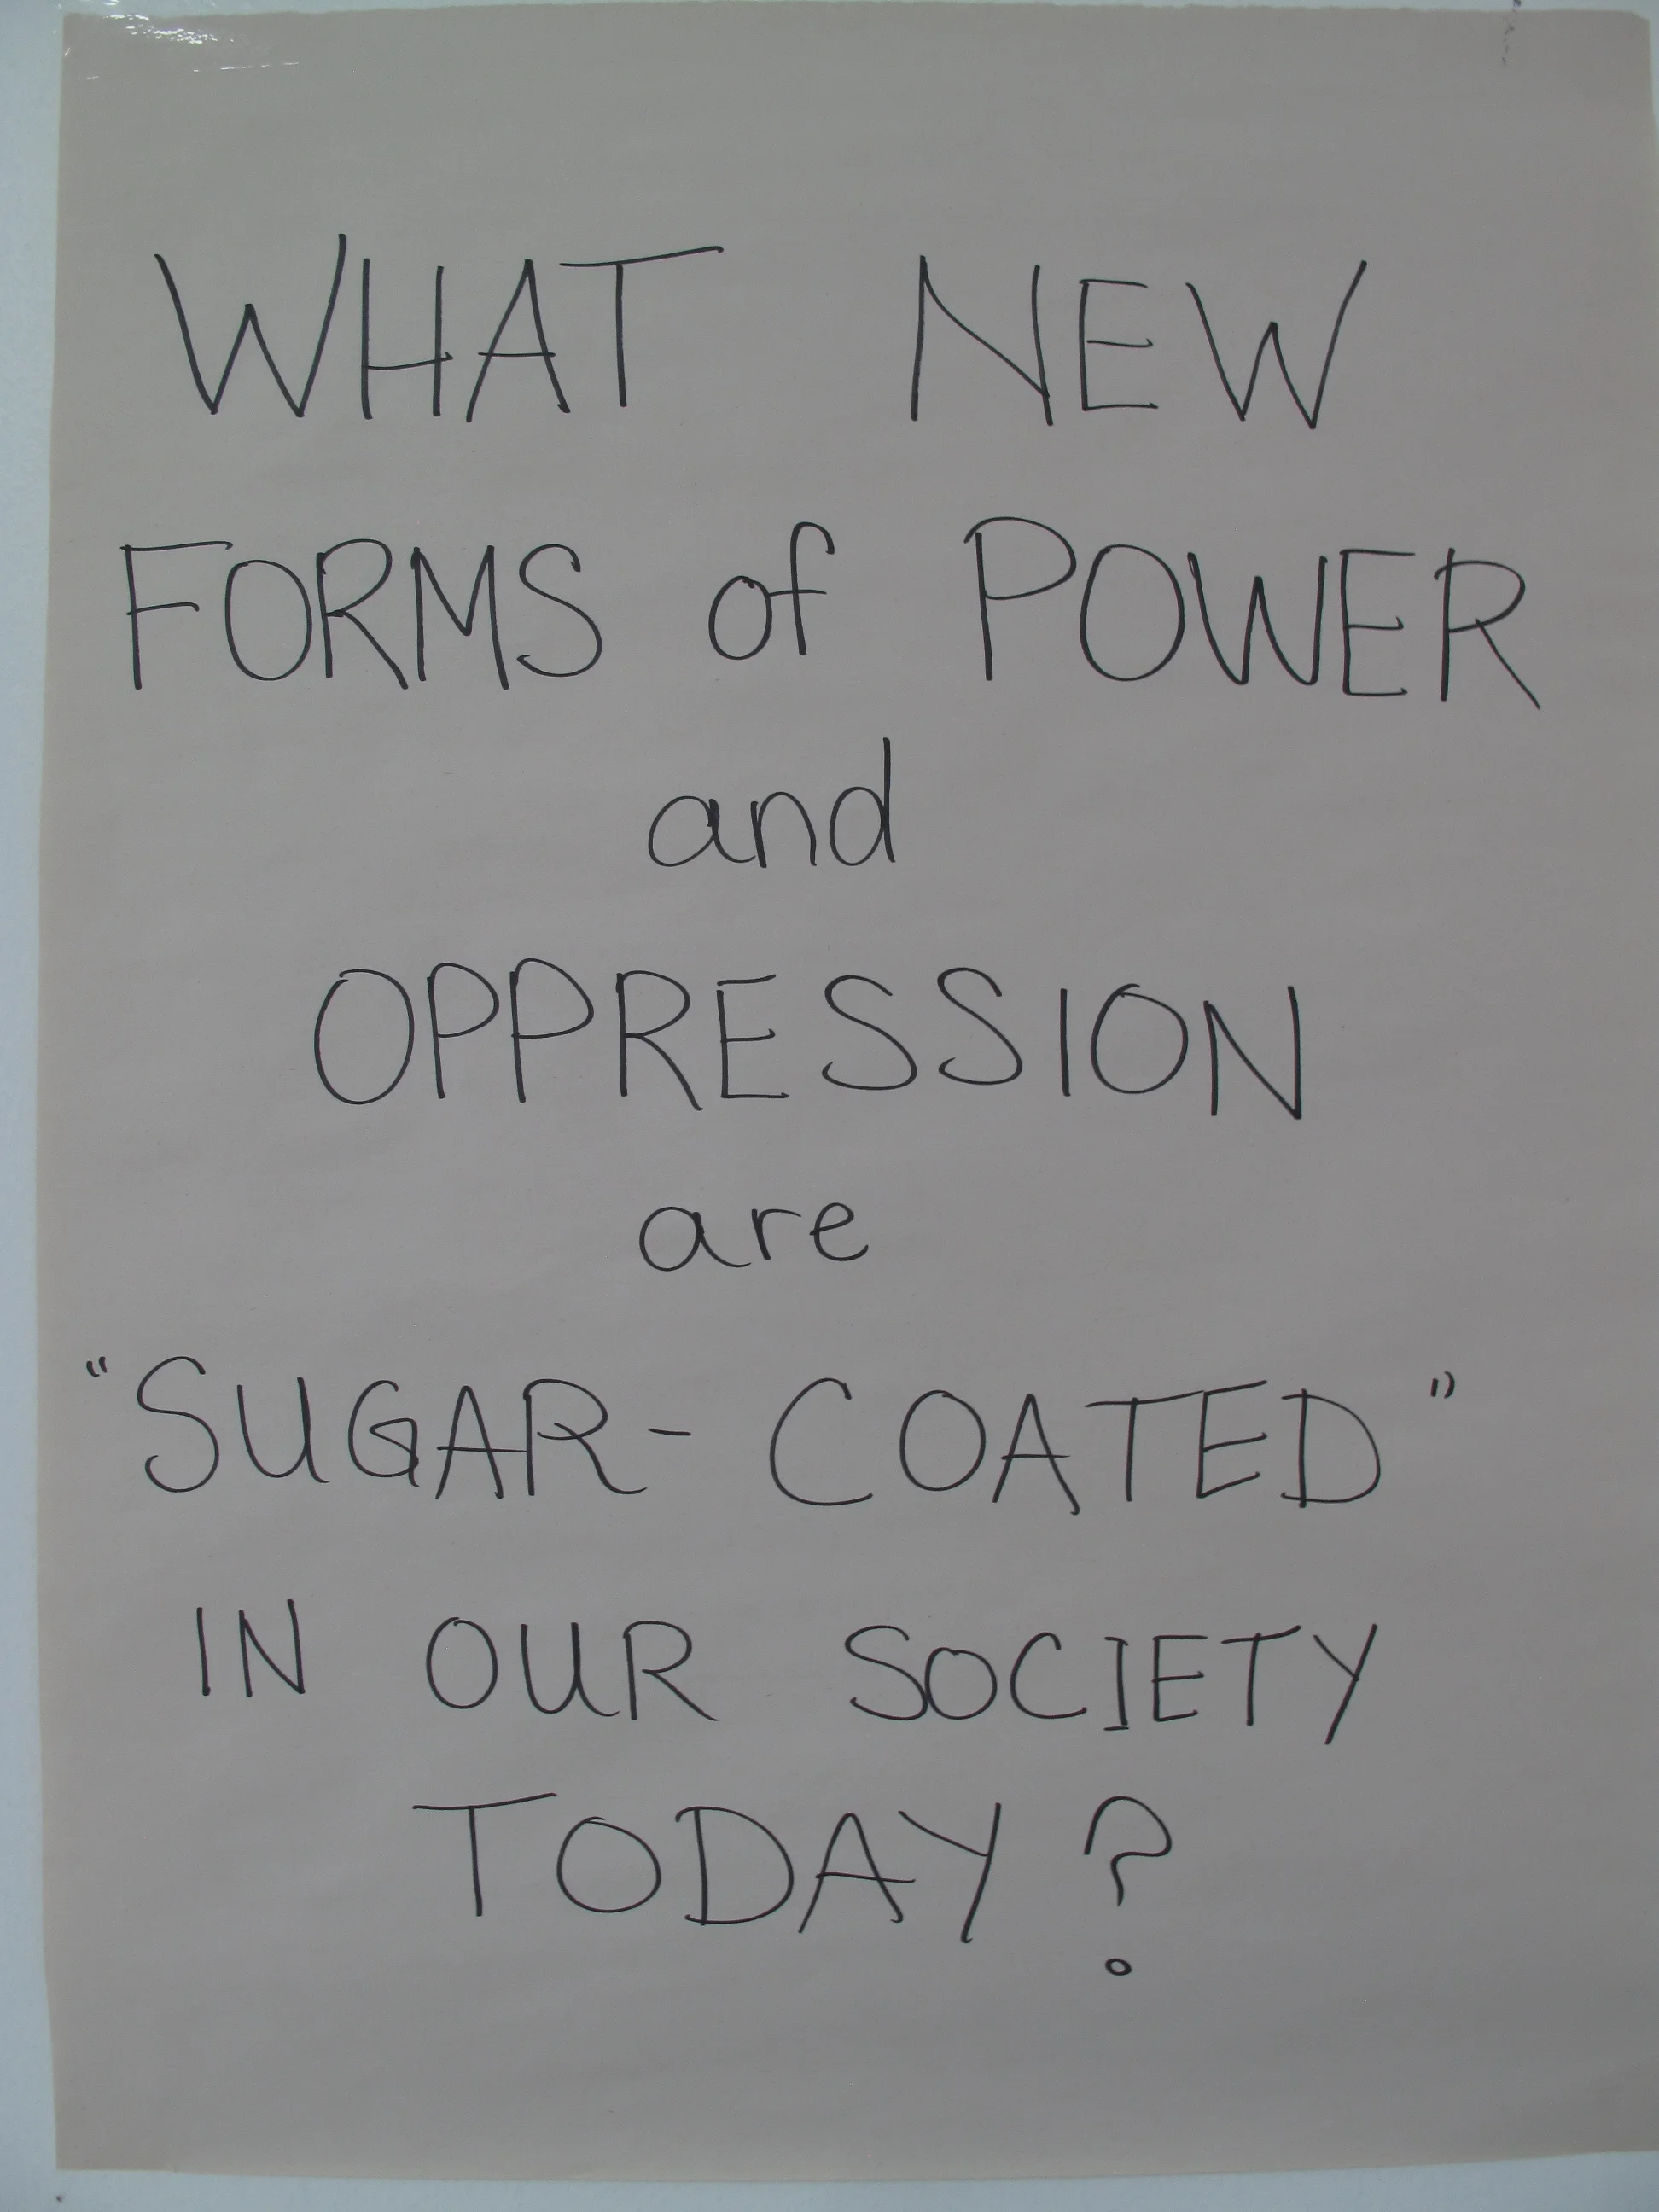 WHAT NEW
FORMS of POWER
and
OPPRESSION
are
"SUGAR-COATED"
IN OUR SOCIETY
TODAY?